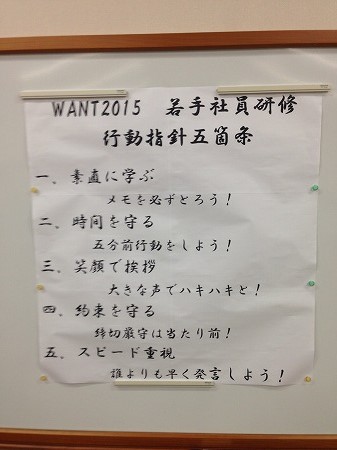 WANT2015 若手社員研修
行動指針五箇条
一．素直に学ぶ
メモを必ずとろう！
二．時間を守る
五分前行動をしよう！
三．笑顔で挨拶
大きな声でハキハキと！
四．約束を守る
締切厳守は当たり前！
五．スピード重視
誰よりも早く発言しよう！